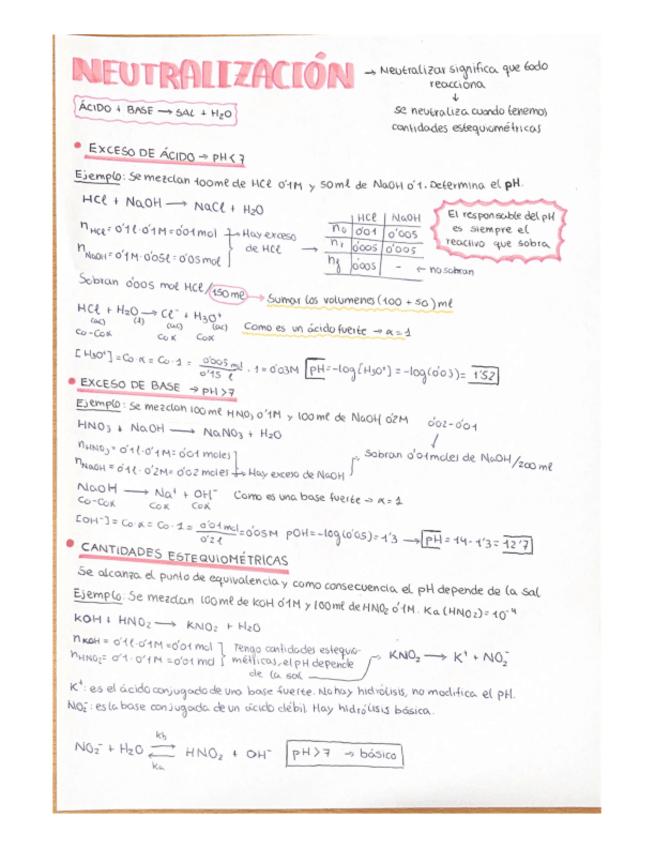 NEUTRALIZACIÓN
→ Neutralizar significa que todo
reacciona
↓
se neutraliza cuando tenemos
cantidades estequiométricas
ÁCIDO + BASE → SAL + H₂O
• EXCESO DE ÁCIDO → pH<7
Ejemplo: Se mezclan 100ml de HCl 0'1M y 50ml de NaOH 0'1. Determina el pH.
HCl + NaOH → NaCl + H₂O
nHCl = 0'1l·0'1M=0'01mol
nNaOH=0'1M·0'05l=0'05mol
→ Hay exceso
de HCl
→
HCl NaOH
n₀ 0'01 0'005
nr 0'005 0'005
nf 0'005 - ← no sobran
El responsable del pH
es siempre el
reactivo que sobra
Sobran 0'005 mol HCl/150ml → Sumar los volumenes (100 + 50) ml
HCl + H₂O → Cl⁻ + H₃O⁺
(ac) (l) (ac) (ac)
Co-Coα Coα Coα
Como es un ácido fuerte → α=1
[H₃O⁺] = Co·α = Co·1 = 0'005mol / 0'15 l · 1 = 0'03M pH=-log[H₃O⁺] = -log(0'03)= 1'52
• EXCESO DE BASE → pH>7
Ejemplo: Se mezclan 100ml HNO₃ 0'1M y 100ml de NaOH 0'2M
0'02-0'01
↓
HNO₃ + NaOH → NaNO₃ + H₂O
nHNO₃= 0'1l·0'1M= 0'01 moles
nNaOH = 0'1l·0'2M= 0'02 moles
→ Hay exceso de NaOH
Sobran 0'01moles de NaOH/200ml
NaOH → Na⁺ + OH⁻
Co-Coα Coα Coα
Como es una base fuerte → α=1
[OH⁻] = Co·α = Co·1 = 0'01mol / 0'2l =0'05M pOH=-log(0'05)=1'3 → pH=14-1'3= 12'7
• CANTIDADES ESTEQUIOMÉTRICAS
Se alcanza el punto de equivalencia y como consecuencia el pH depende de la sal
Ejemplo: Se mezclan 100ml de KOH 0'1M y 100ml de HNO₂ 0'1M. Ka (HNO₂)=10⁻⁴
KOH + HNO₂ → KNO₂ + H₂O
nKOH = 0'1l·0'1M=0'01mol
nHNO₂= 0'1·0'1M=0'01 mol
Tengo cantidades estequio-
métricas, el pH depende
de la sal
KNO₂ → K⁺ + NO₂⁻
K⁺: es el ácido conjugado de una base fuerte. No hay hidrólisis, no modifica el pH.
NO₂⁻: es la base conjugada de un ácido débil. Hay hidrólisis básica.
kb
NO₂⁻ + H₂O ⇌ HNO₂ + OH⁻ pH>7 → básico
ka